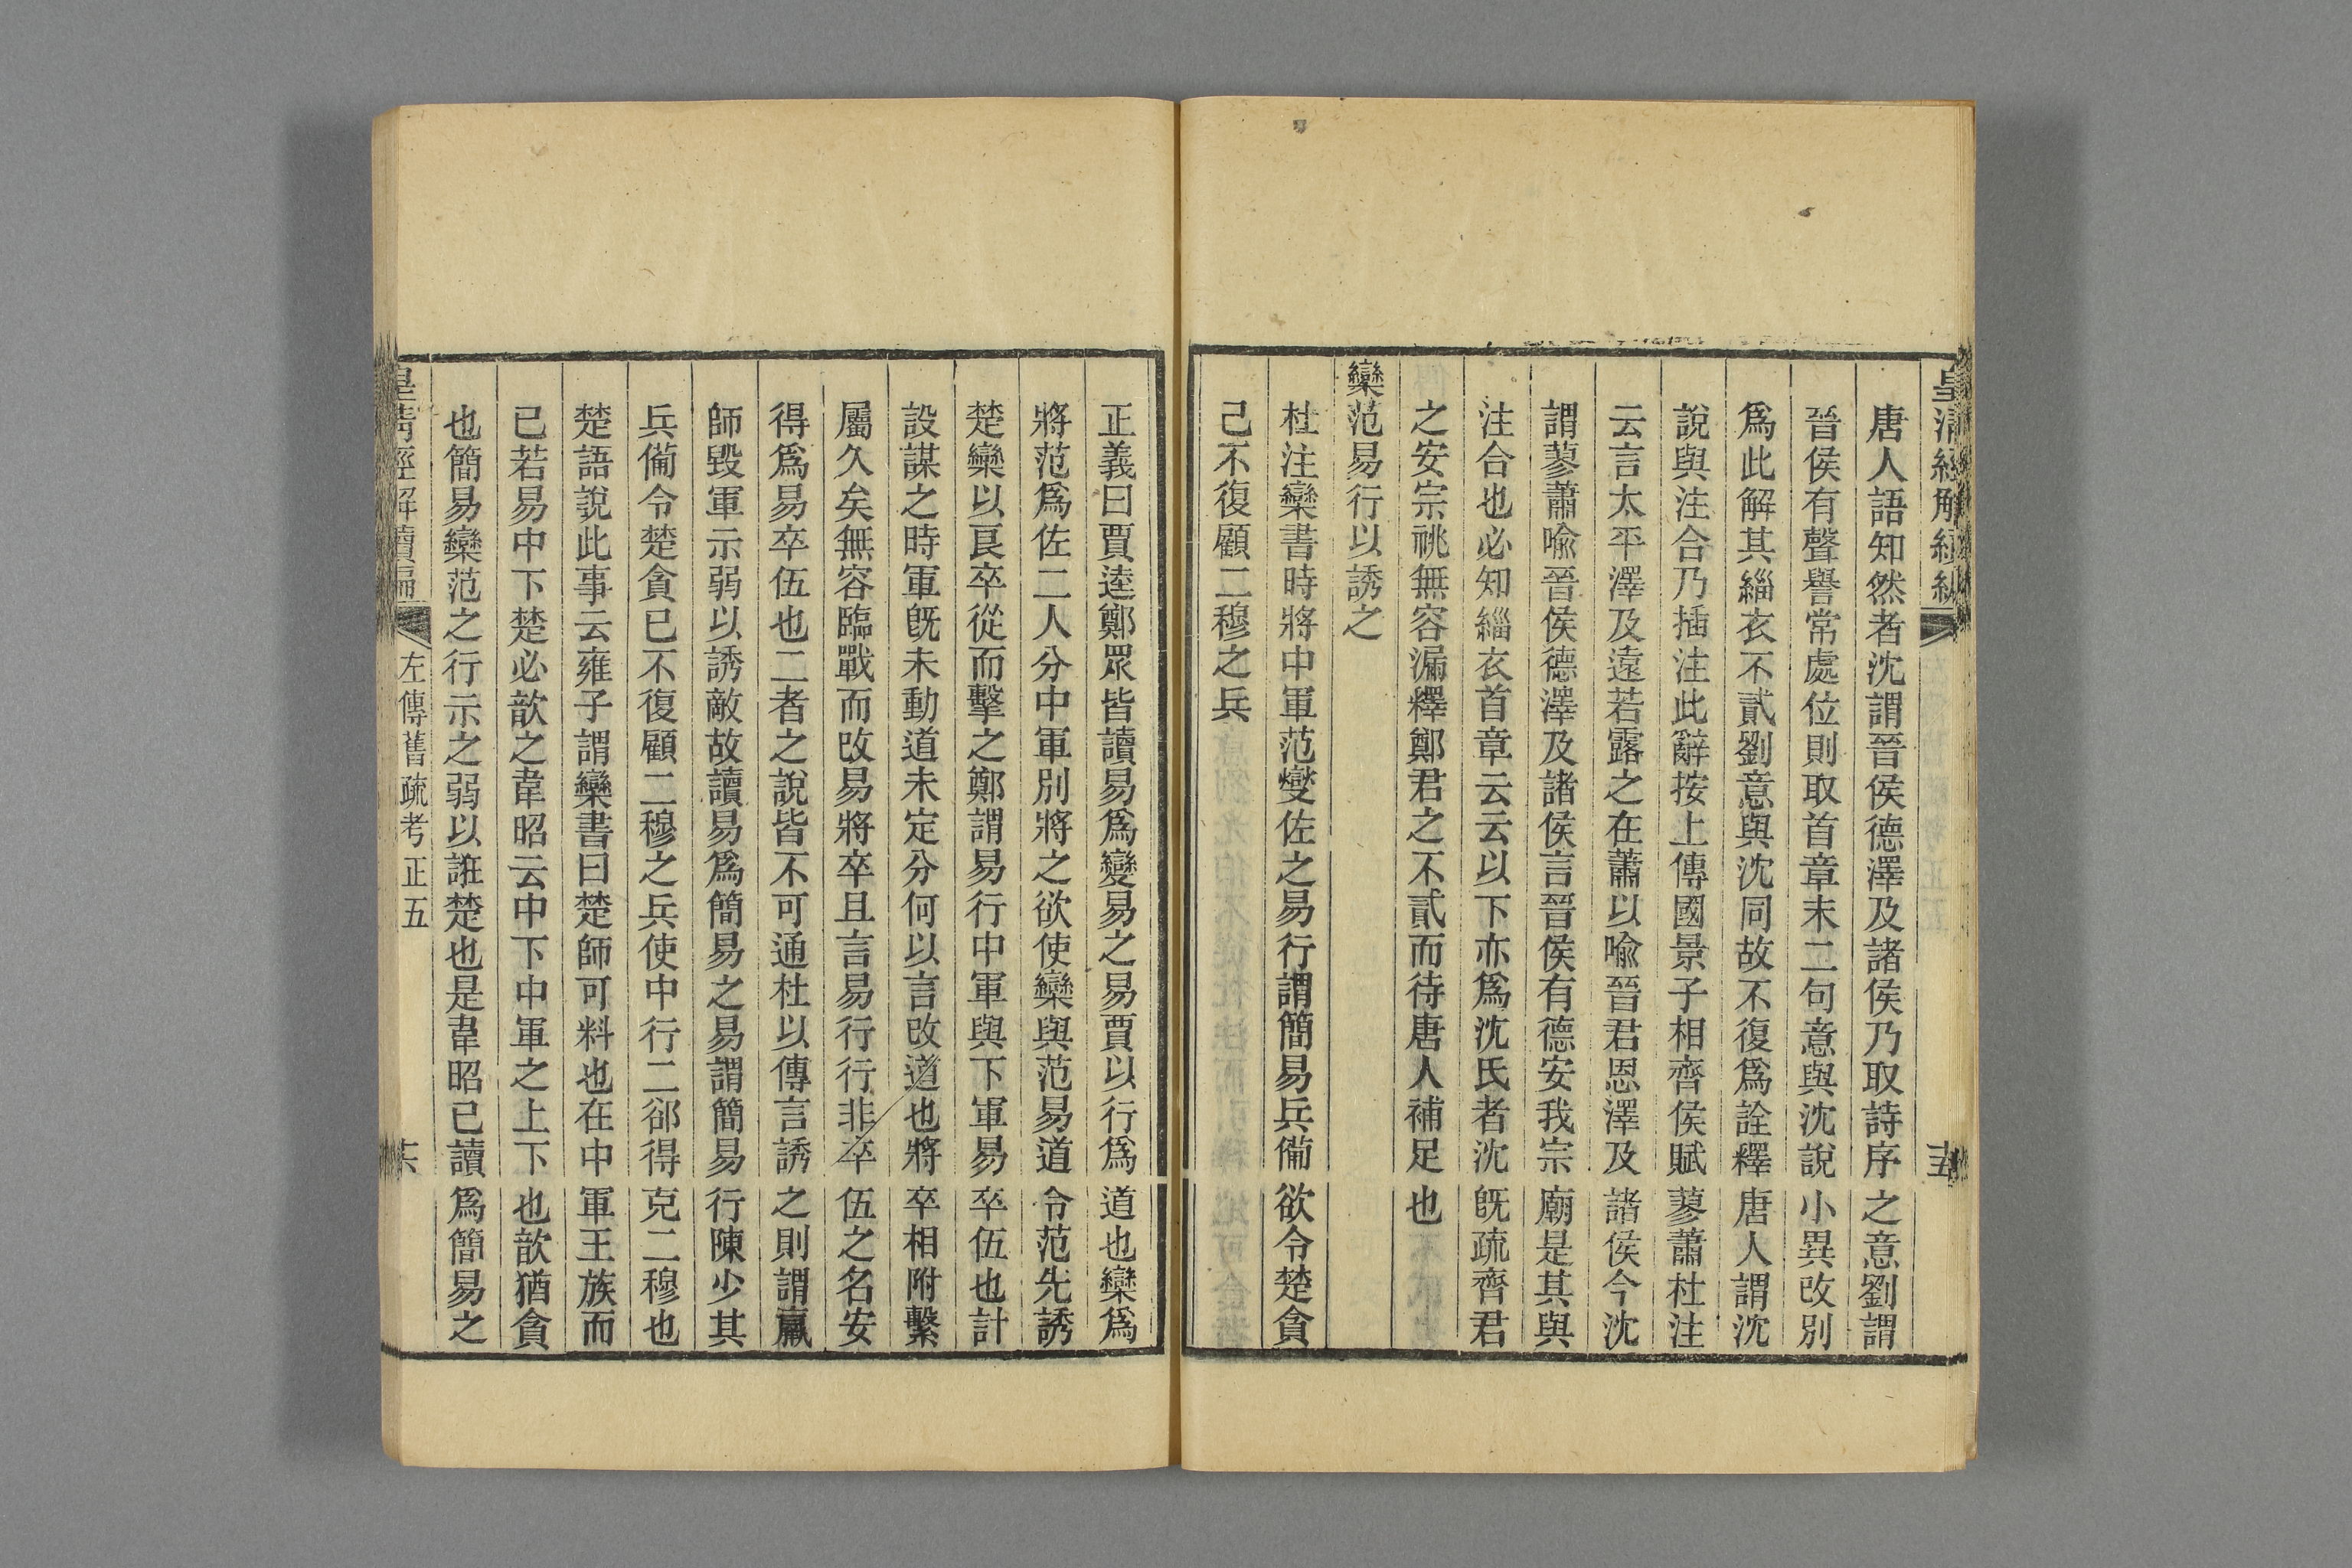 唐人語知然者沈謂晉侯德澤及諸侯乃取詩序之意劉謂
晉侯有聲譽常處位則取首章末二句意與沈說小異改別
爲此解其緇衣不貳劉意與沈同故不復爲詮釋唐人謂沈
說與注合乃插注此辭按上傳國景子相齊侯賦蓼蕭杜注
云言太平澤及遠若露之在蕭以喻晉君恩澤及諸侯今沈
謂蓼蕭喻晉侯德澤及諸侯言晉侯有德安我宗廟是其與
注合也必知緇衣首章云云以下亦爲沈氏者沈旣疏齊君
之安宗祧無容漏釋鄭君之不貳而待唐人補足也
欒范易行以誘之
杜注欒書時將中軍范燮佐之易行謂簡易兵備欲令楚貪
己不復顧二穆之兵
正義曰賈逵鄭眾皆讀易爲變易之易賈以行爲道也欒爲
將范爲佐二人分中軍別將之欲使欒與范易道令范先誘
楚欒以良卒從而擊之鄭謂易行中軍與下軍易卒伍也計
設謀之時軍旣未動道未定分何以言改道也將卒相附繫
屬久矣無容臨戰而改易將卒且言易行行非卒伍之名安
得爲易卒伍也二者之說皆不可通杜以傳言誘之則謂羸
師毀軍示弱以誘敵故讀易爲簡易之易謂簡易行陳少其
兵備令楚貪已不復顧二穆之兵使中行二郤得克二穆也
楚語說此事云雍子謂欒書曰楚師可料也在中軍王族而
已若易中下楚必歆之韋昭云中下中軍之上下也歆猶貪
也簡易欒范之行示之弱以誑楚也是韋昭已讀爲簡易之
皇清經解續編
左傳舊疏考正五